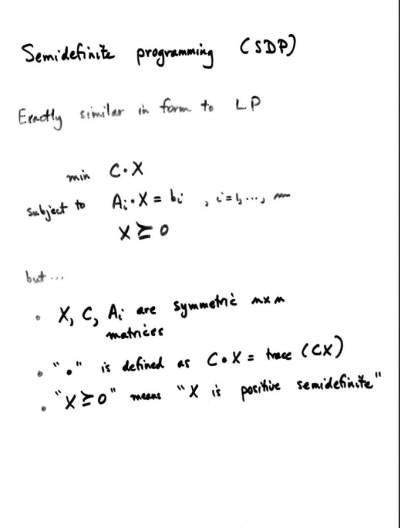 Semidefinite programming (SDP)
Exactly similar in form to LP
min C•X
subject to Ai•X = bi , i=1,..., m
X ⪰ 0
but...
• X, C, Ai are symmetric n×n
matrices
• "•" is defined as C•X = trace (CX)
• "X ⪰ 0" means "X is positive semidefinite"